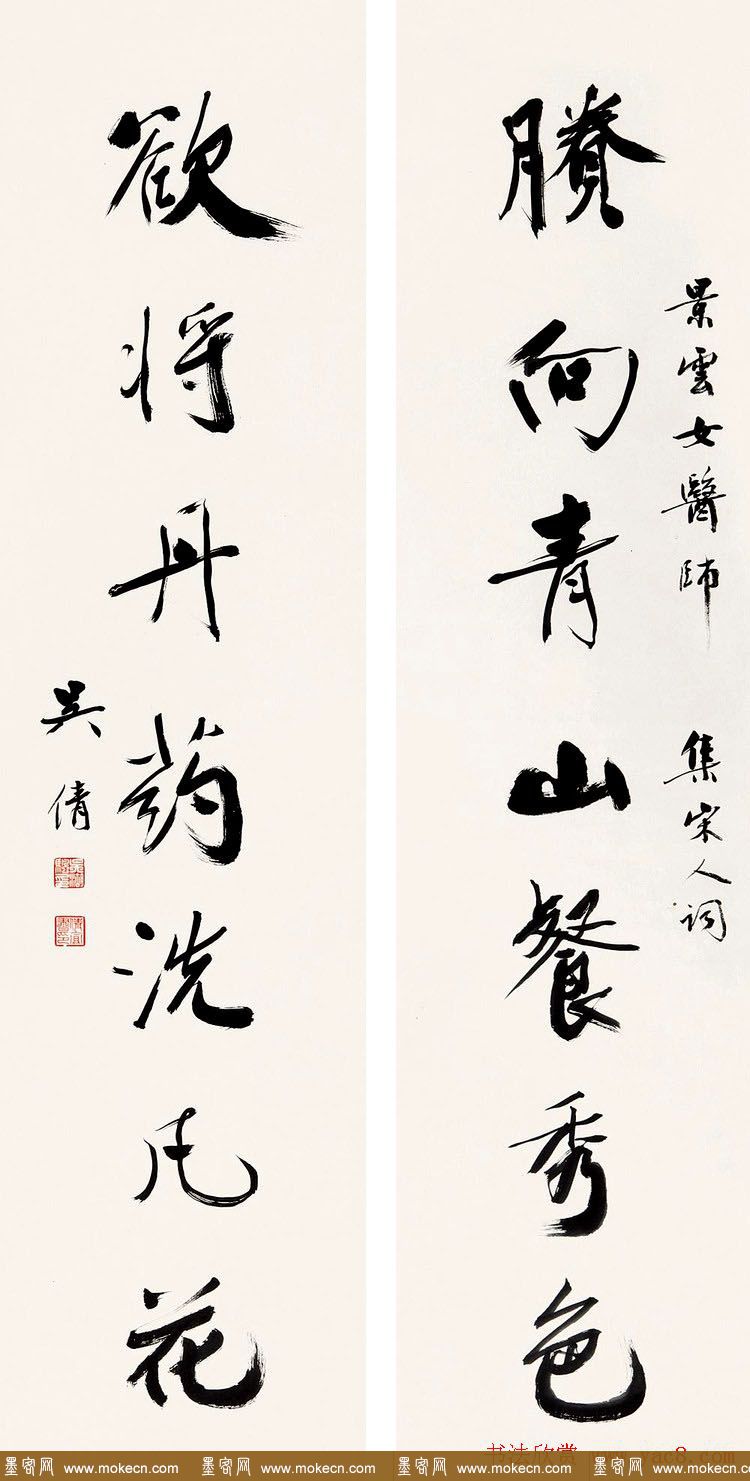 景雲女醫師 集宋人詞
賸向青山餐秀色
欲将丹葯洗凡花
吴倩
书法欣赏 www.yac8.com
墨客网 www.mokecn.com 墨客网 www.mokecn.com 墨客网 www.mokecn.com 墨客网 www.mokecn.com